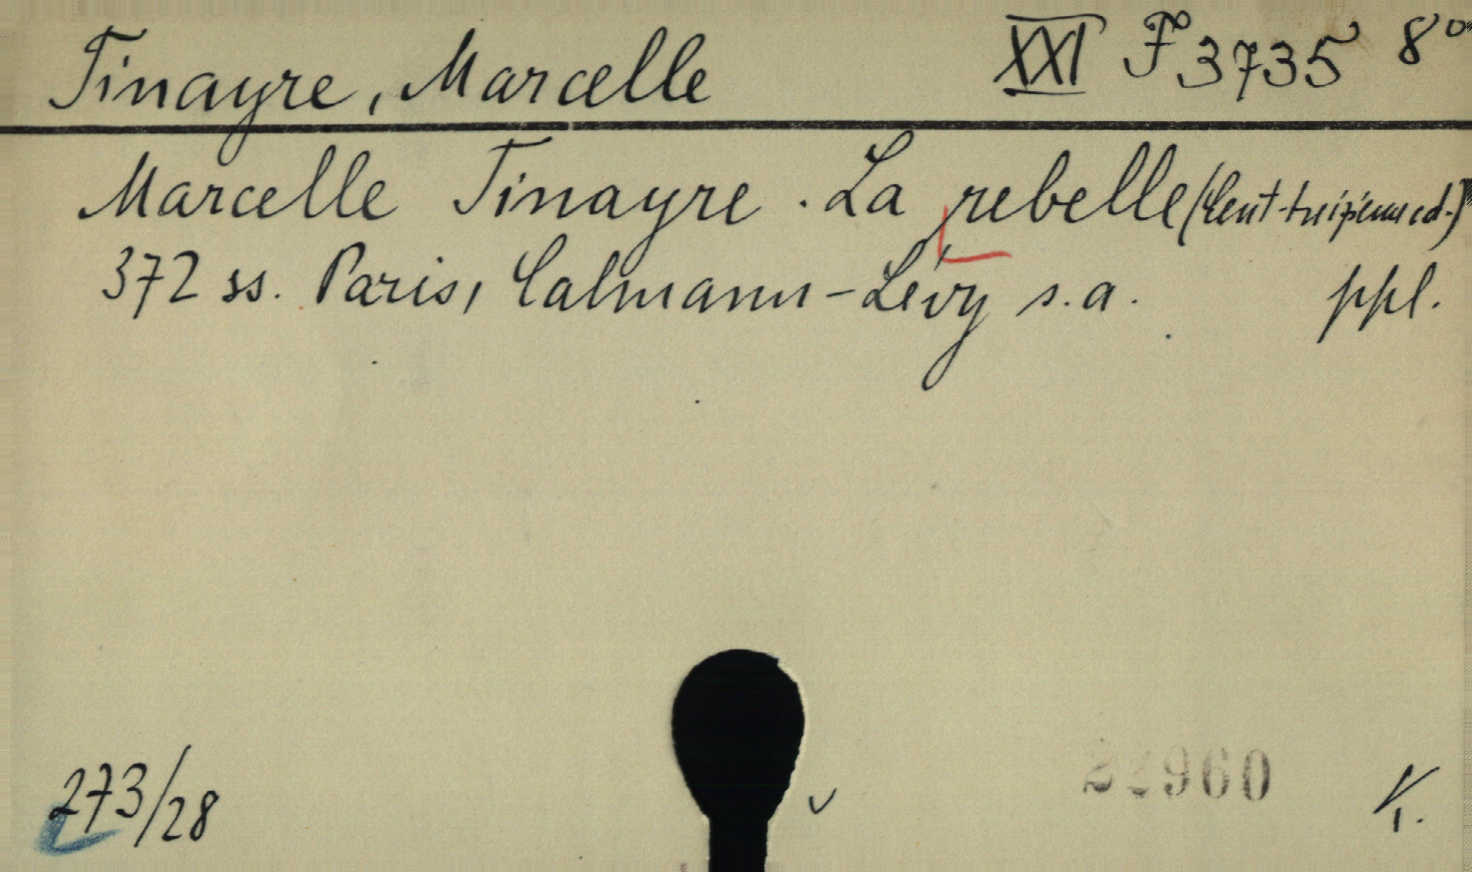 Tinayre, Marcelle XXI F 3735 8°
Marcelle Tinayre. La rebelle (Cent-troisième ed.)
372 ss. Paris, Calmann-Lévy s.a. ppl.
273/28
960